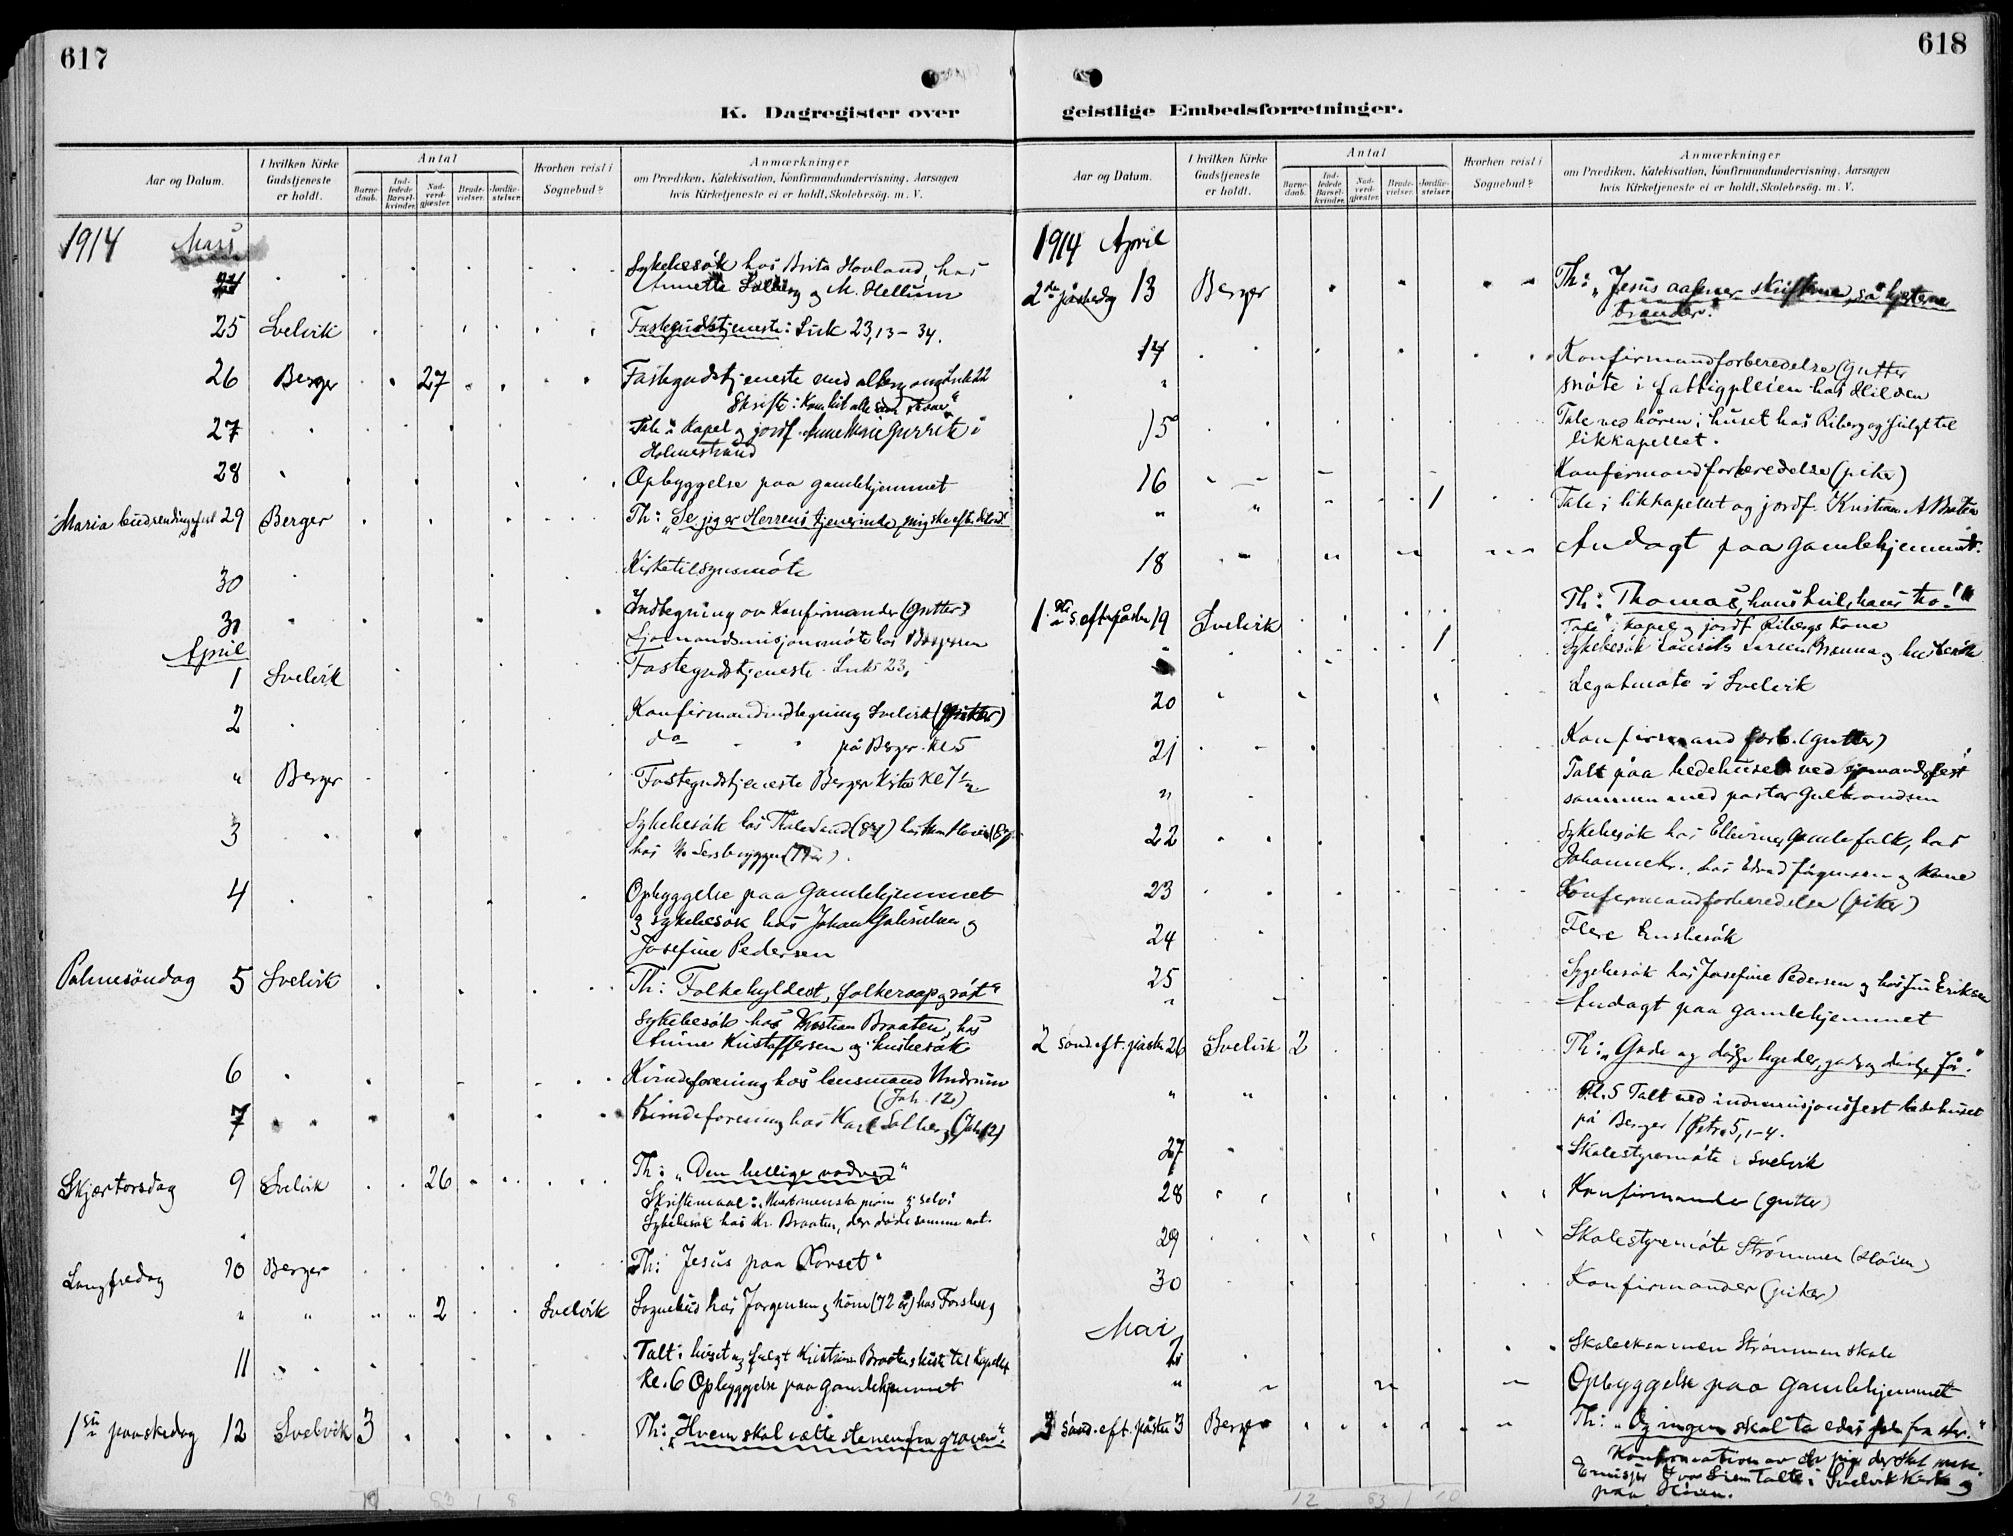 617
K. Dagregister over
Aar og Datum.
I hvilken Kirke
Gudstjeneste
er holdt.
Antal
Barne-
daab.
Ind-
ledede
Barsel-
kvinder.
Nad-
verd-
gjæster.
Brude-
vielser.
Jordfæ-
stelser.
Hvorhen reist i
Sognebud?
Anmærkninger
om Prædiken, Katekisation, Konfirmandundervisning. Aarsagen
hvis Kirketjeneste ei er holdt, Skolebesøg. m. V.
1914 Mars
24 Sykebesøk hos Brita Hovland, hos
Annette Solberg og M. Hellum
25 Svelvik Fastegudstjeneste: Luk 23,13-34.
26 Berger 27 Fastegudstjeneste med altergang Luk 22
Skrifte: Kom hit alle som
27 Tale i Kapel og jordf. i
Holmestrand
28 Opbyggelse paa gamlehjemmet
Maria budskabsfest 29 Berger Th: "Se jeg er Herrens tjenerinde, mig ske efter dit ord"
30 Kirketilsynsmøte
31 Indtegning av Konfirmander (Gutter)
Sjømandsmisjonsmøte hos
April
1 Svelvik Fastegudstjeneste Luk 23,
2 Konfirmandindtegning Svelvik (Gutter)
do " på Berger kl 5
" Berger Fastegudstjeneste Berger Kirke Kl 7 1/2
3 Sykebesøk hos
hos
4 Opbyggelse paa Gamlehjemmet
og sykebesøk hos Johan Gabrielsen og
Josefine Pedersen
Palmesøndag 5 Svelvik Th: "Folkehyldest, folkeraap og røst"
Sykebesøk hos Kristian Braaten, hos
Anne Kristoffersen og husbesøk
6 Kvindeforening hos lensmand Undrum
(Joh. 12)
7 Kvindeforening hos Karl Solberg (Joh 12)
Skjærtorsdag 9 Svelvik 26 Th: "Den hellige nadverd"
Skriftemaal: Mennesket prøve sig selv:
Sykebesøk hos Kr. Braaten, der døde samme nat.
Langfredag 10 Berger Th: Jesus paa Korset"
" " 2 Svelvik Sognebud hos Jørgensen og kone (72 år) hos Forsberg
11 Talt i huset og fulgt Kristian Braatens kiste til kapellet
kl. 6 Opbyggelse paa gamlehjemmet
1ste paaskedag 12 Svelvik 3 Th: "Hvem skal vælte stenen fra graven"
618
geistlige Embedsforretninger.
Aar og Datum.
I hvilken Kirke
Gudstjeneste
er holdt.
Antal
Barne-
daab.
Ind-
ledede
Barsel-
kvinder.
Nad-
verd-
gjæster.
Brude-
vielser.
Jordfæ-
stelser.
Hvorhen reist i
Sognebud?
Anmærkninger
om Prædiken, Katekisation, Konfirmandundervisning. Aarsagen
hvis Kirketjeneste ei er holdt, Skolebesøg. m. V.
1914 April
2den påskedag 13 Berger Th: "Jesus aapner skriftene, så hjertene
brænder."
14 Konfirmandforberedelse (Gutter
" møte i fattigpleien hos Hilden
15 Tale ved båren i huset hos Riberg og fulgt til
likkapellet.
16 Konfirmandforberedelse (piker)
" 1 Tale i likkapellet og jordf. Kristian A Braaten
18 Andagt paa gamlehjemmet.
1ste s. efter påske 19 Svelvik Th: Thomas, hans tvil, hans tro!"
1 Tale i kapel og jordf Ribergs kone
Sykebesøk Laurits Larsen Brænna og husbesøk
20 Legatmøte i Svelvik
21 Konfirmandforb. (Gutter)
" Talt paa bedehuset ved sjømandsfest
sammen med pastor Gulbrandsen
22 Sykebesøk hos gamle folk, hos
Johanne Kr., hos Edvard Jørgensen og kone
23 Konfirmandforberedelse (piker)
24 Flere husbesøk
25 Sykebesøk hos Josefine Pedersen og hos Eriksen
" Andagt paa gamlehjemmet
2 sønd. eft. påske 26 Svelvik 2 Th: "Gode og dårlige hyrder, gode og dårlige får."
" " Kl. 5 Talt ved indremisjonsfest bedehuset
på Berger 1 Petr. 5,1-4.
27 Skolestyremøte i Svelvik
28 Konfirmander (gutter)
29 Skolestyremøte Strømmen (Høien)
30 Konfirmander (piker)
Mai
2 Skoleeksamen Strømmen skole
" Opbyggelse paa gamlehjemmet
3 sønd. eft. påske 3 Berger Th: "Og ingen skal ta eders fra eder."
Konfirmation av en pige der skal reise.
Emissær talte i Svelvik Kirke og
paa Høien.
12 83 1 10